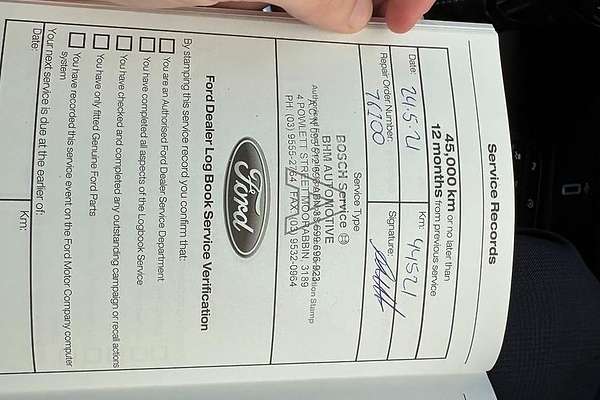 Service Records
45,000 km or no later than
12 months from previous service
Date: 24.5.21
Km: 44521
Repair Order Number: 76100
Signature:
Service Type
BOSCH Service
BHM AUTOMOTIVE
4 POWLETT STREET MOORABBIN 3189
PH (03) 9555-2764 FAX (03) 9532-0964
Ford
Ford Dealer Log Book Service Verification
By stamping this service record you confirm that:
You are an Authorised Ford Dealer Service Department
You have completed all aspects of the Logbook Service
You have checked and completed any outstanding campaign or recall actions
You have only fitted Genuine Ford Parts
You have recorded this service event on the Ford Motor Company computer
system
Your next service is due at the earlier of:
Date:
Km: